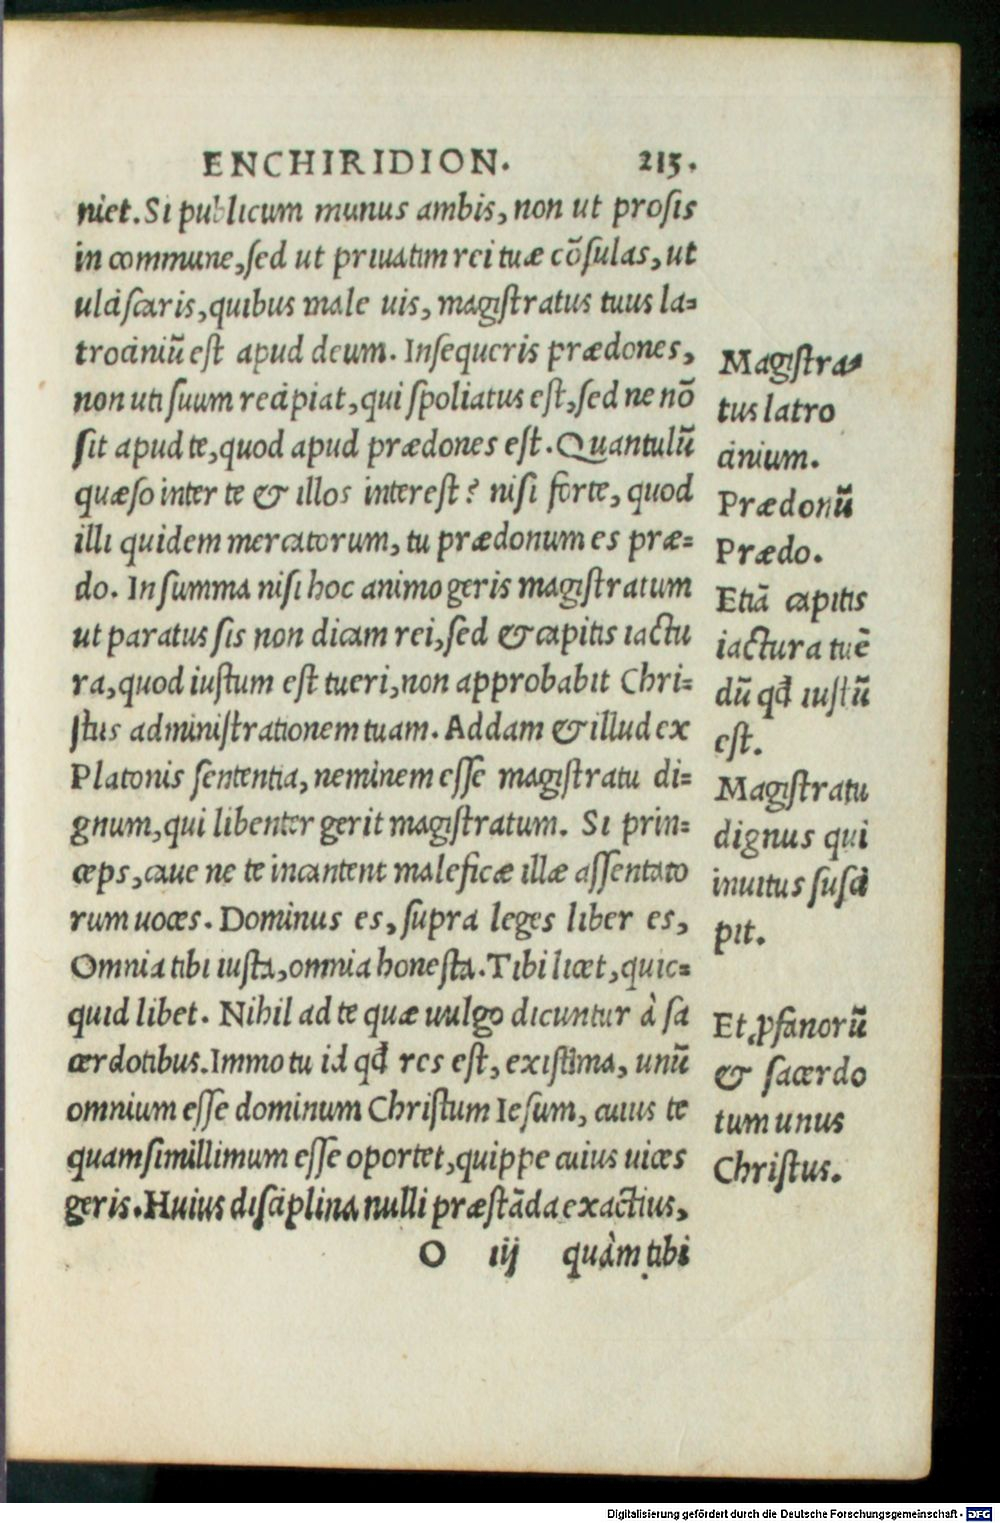 ENCHIRIDION. 215.
niet. Si publicum munus ambis, non ut prosis
in commune, sed ut priuatim rei tuæ cõsulas, ut
ulciscaris, quibus male uis, magistratus tuus la=
trociniũ est apud deum. Insequeris prædones,
non uti suum recipiat, qui spoliatus est, sed ne nõ
sit apud te, quod apud prædones est. Quantulũ
quæso inter te & illos interest? nisi forte, quod
illi quidem mercatorum, tu prædonum es præ=
do. In summa nisi hoc animo geris magistratum
ut paratus sis non dicam rei, sed & capitis iactu
ra, quod iustum est tueri, non approbabit Chri=
stus administrationem tuam. Addam & illud ex
Platonis sententia, neminem esse magistratu di=
gnum, qui libenter gerit magistratum. Si prin=
ceps, caue ne te incantent maleficæ illæ assentato
rum uoces. Dominus es, supra leges liber es,
Omnia tibi iusta, omnia honesta. Tibi licet, quic=
quid libet. Nihil ad te quæ uulgo dicuntur à sa
cerdotibus. Immo tu id qđ res est, existima, unũ
omnium esse dominum Christum Iesum, cuius te
quam simillimum esse oportet, quippe cuius uices
geris. Huius disciplina nulli præstãda exactius,
O iij quàm tibi
Magistra=
tus latro
cinium.
Prædonũ
Prædo.
Etiã capitis
iactura tuẽ
dũ qđ iustũ
est.
Magistratu
dignus qui
inuitus susci
pit.
Et ꝓfanorũ
& sacerdo
tum unus
Christus.
Digitalisierung gefördert durch die Deutsche Forschungsgemeinschaft - DFG